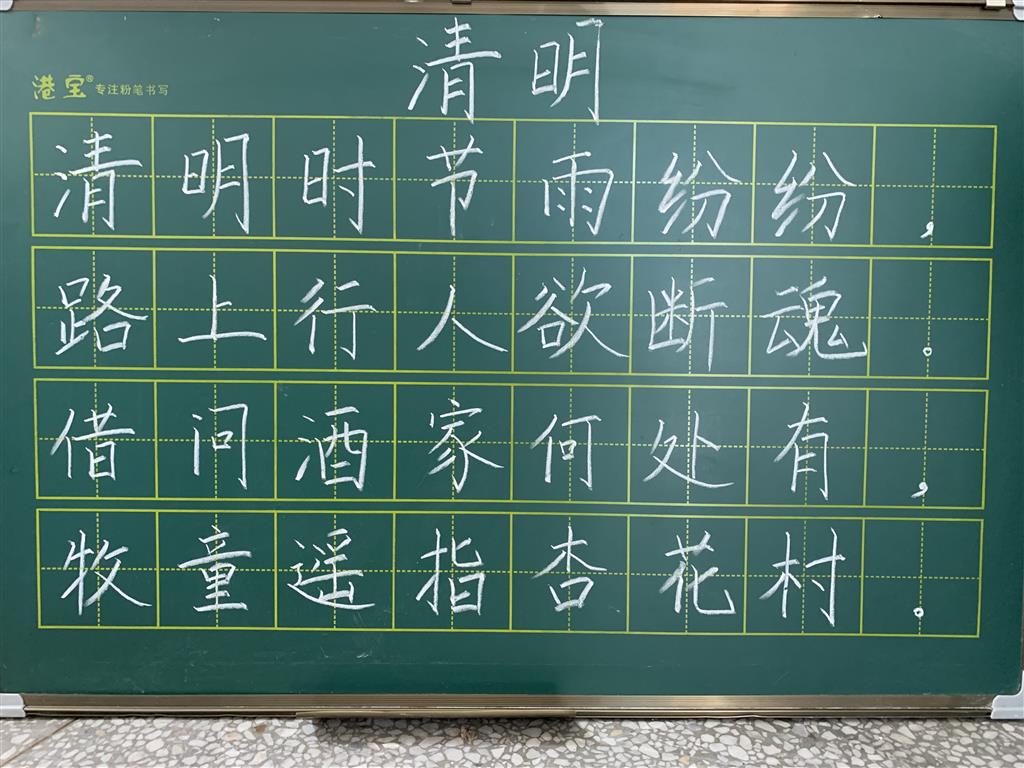 清明
港宝® 专注粉笔书写
清明时节雨纷纷，
路上行人欲断魂。
借问酒家何处有，
牧童遥指杏花村。